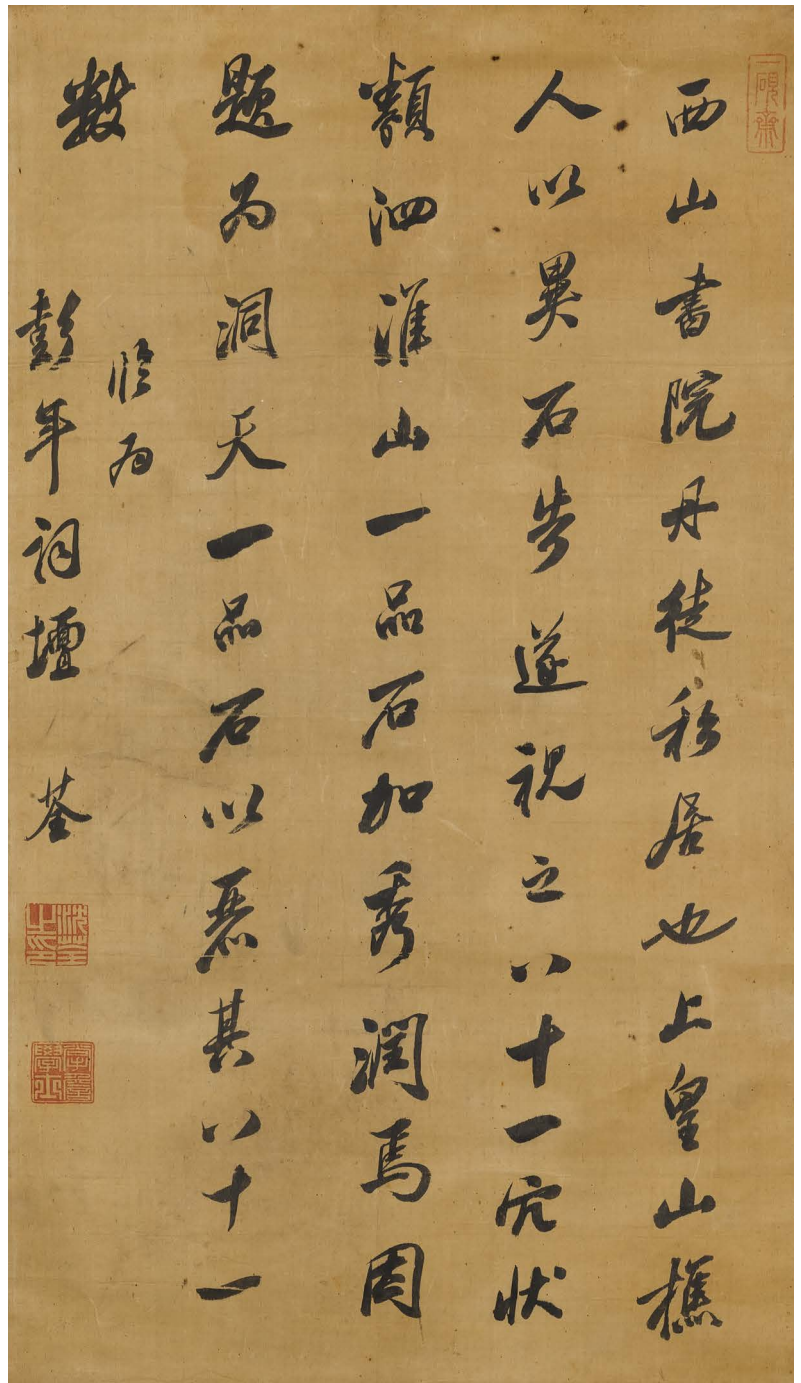 一硯齋
西山書院丹徒私居也上皇山樵
人以異石告遂視之八十一穴狀
類泗淮山一品石加秀潤焉因
題為洞天一品石以麗其八十一
數
臨為
彭年詞壇 荃
沈荃之印